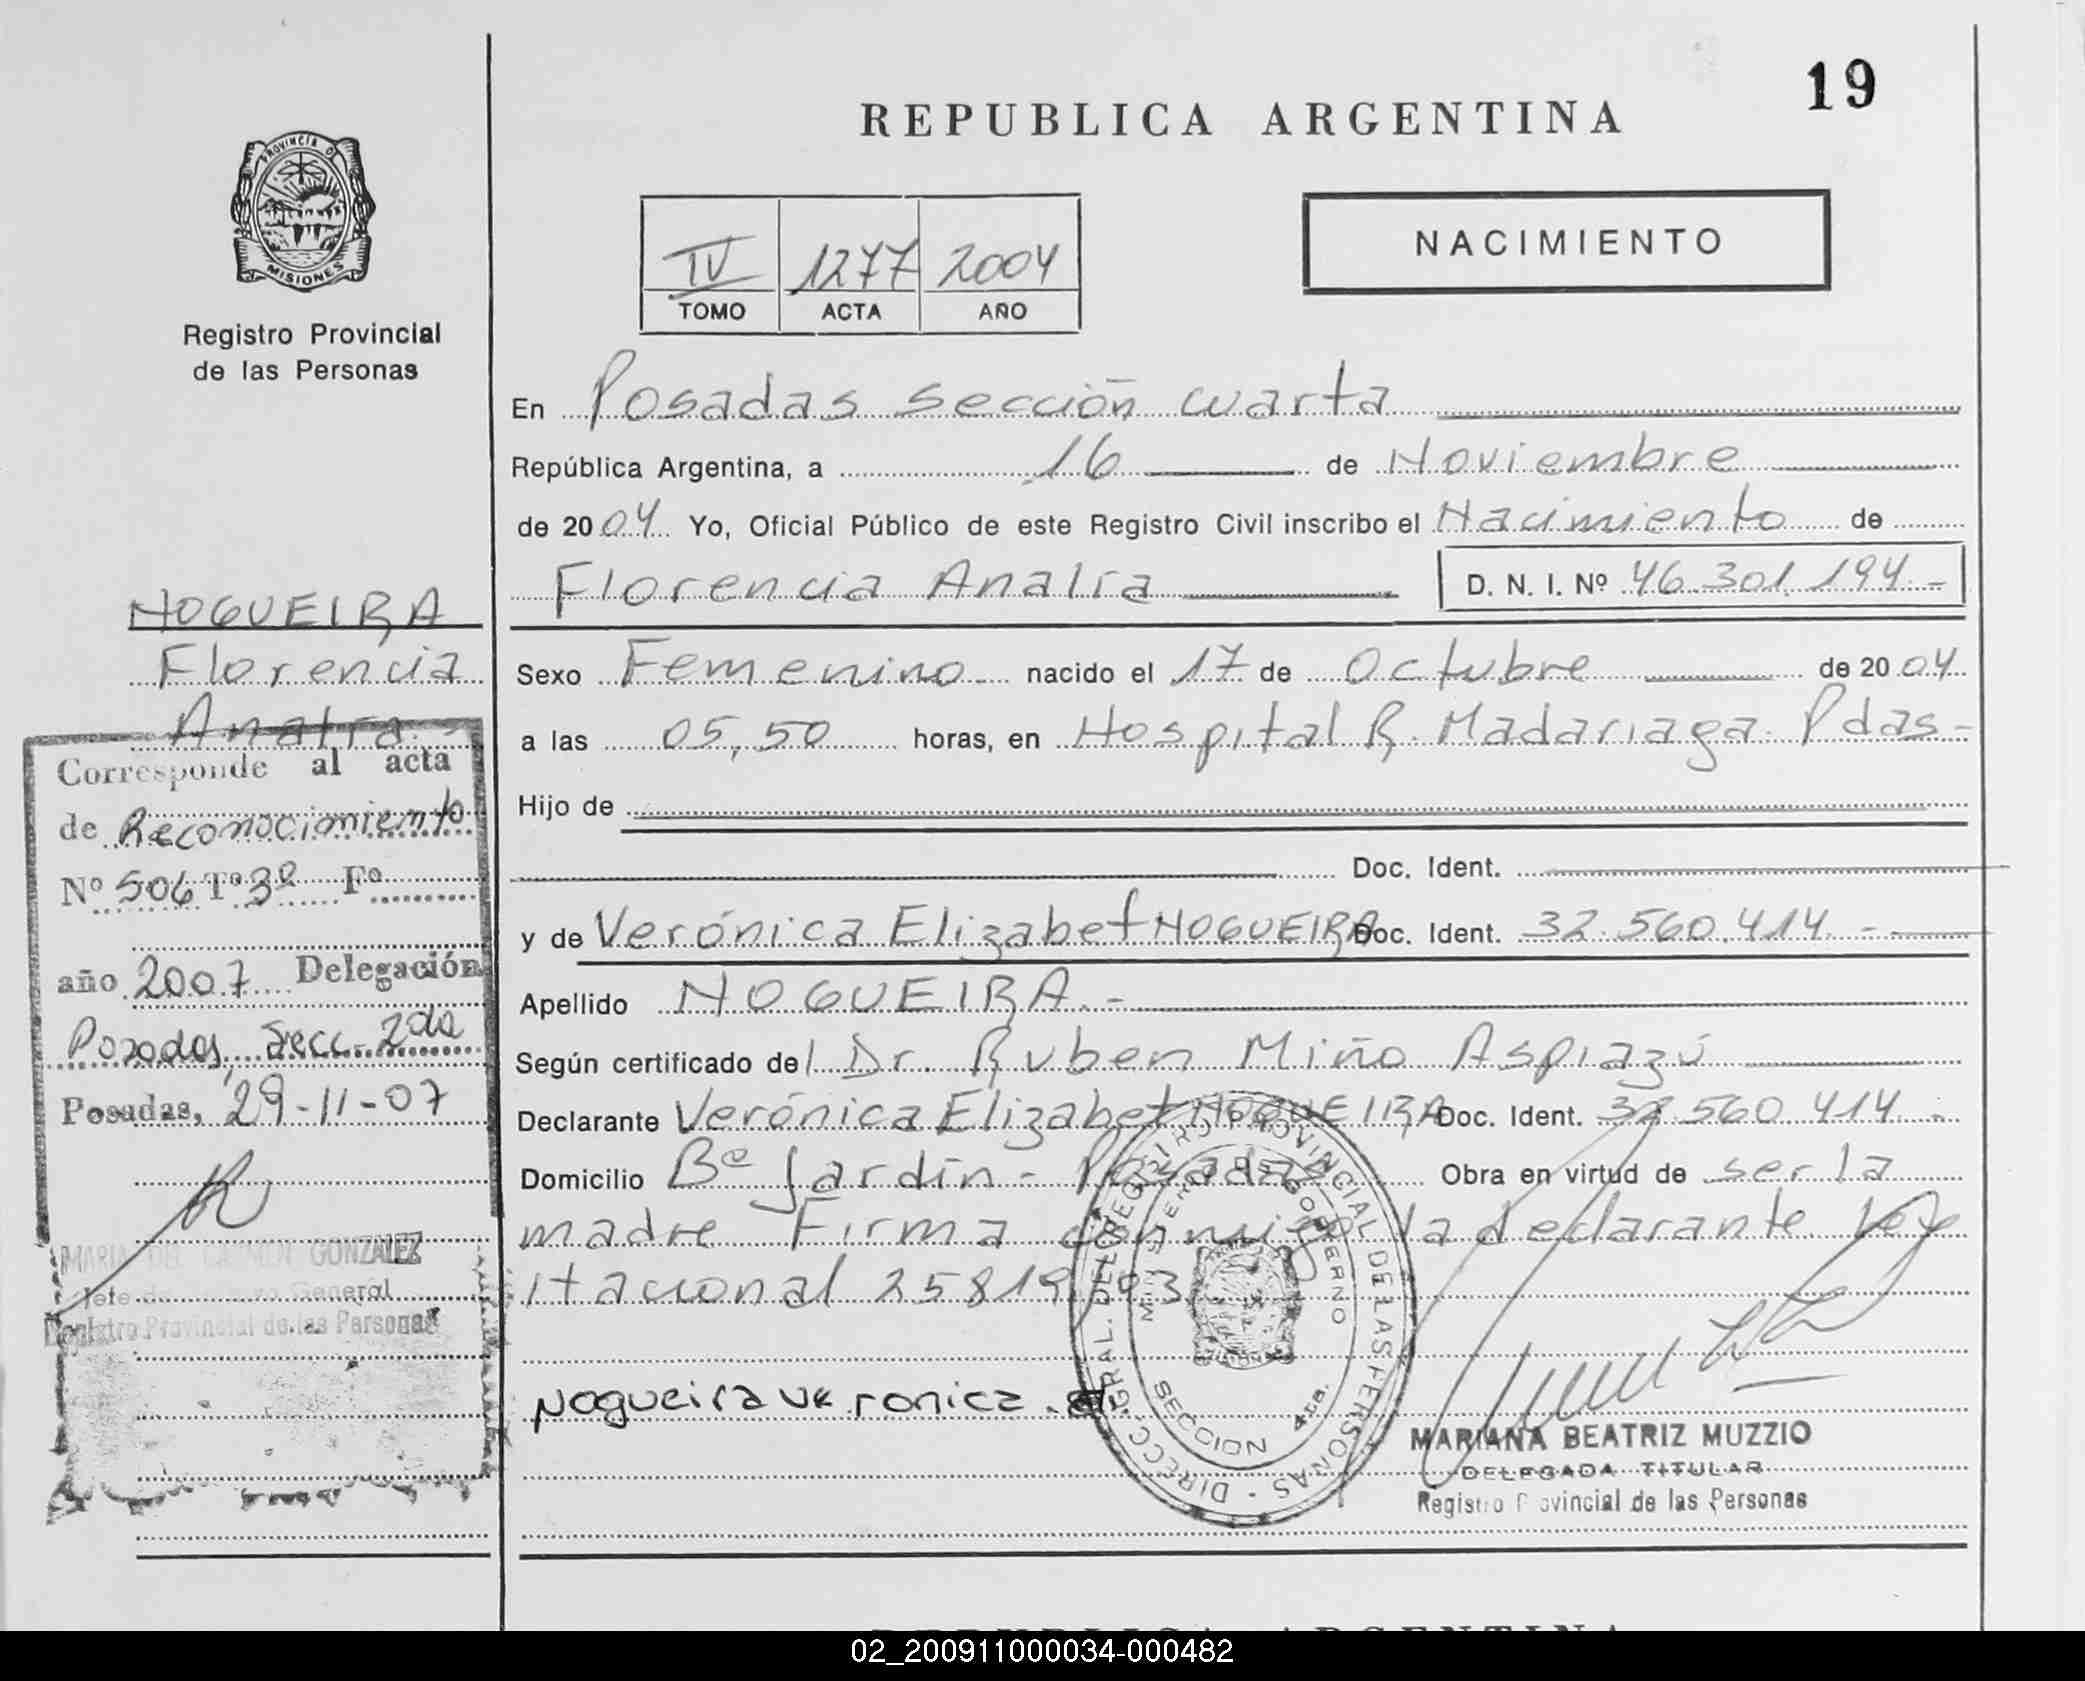 19
REPUBLICA ARGENTINA
NACIMIENTO
IV 1277 2004
TOMO ACTA AÑO
PROVINCIA D
MISIONES
Registro Provincial
de las Personas
En Posadas sección cuarta
República Argentina, a 16 de Noviembre
de 2004 Yo, Oficial Público de este Registro Civil inscribo el Nacimiento de
Florencia Analía D. N. I. Nº 46.301.194.-
Sexo Femenino nacido el 17 de Octubre de 2004
a las 05,50 horas, en Hospital R. Madariaga. Pdas-
Hijo de
Doc. Ident.
y de Verónica Elizabet NOGUEIRA Doc. Ident. 32.560.414.-
Apellido NOGUEIRA.-
Según certificado del Dr. Ruben Miño Aspiazú
Declarante Verónica Elizabet NOGUEIRA Doc. Ident. 32.560.414.-
Domicilio Bº Jardín - Posadas Obra en virtud de ser la
madre Firma conmigo la declarante.
itacional 25819
Nogueira Veronica. E.
DIRECC. GRAL. DEL REGISTRO PROVINCIAL DE LAS PERSONAS
DE GOBIERNO
SECCION 4ta.
MARIANA BEATRIZ MUZZIO
DELEGADA TITULAR
Registro Provincial de las Personas
NOGUEIRA
Florencia
Analía
Corresponde al acta
de Reconocimiento
Nº 506 Tº 3º Fº
año 2007 Delegación
Posadas Secc. 2da
Posadas, 29-11-07
MARIA DEL CARMEN GONZALEZ
Jefe de General
Registro Provincial de las Personas
REPUBLICA ARGENTINA
02_200911000034-000482